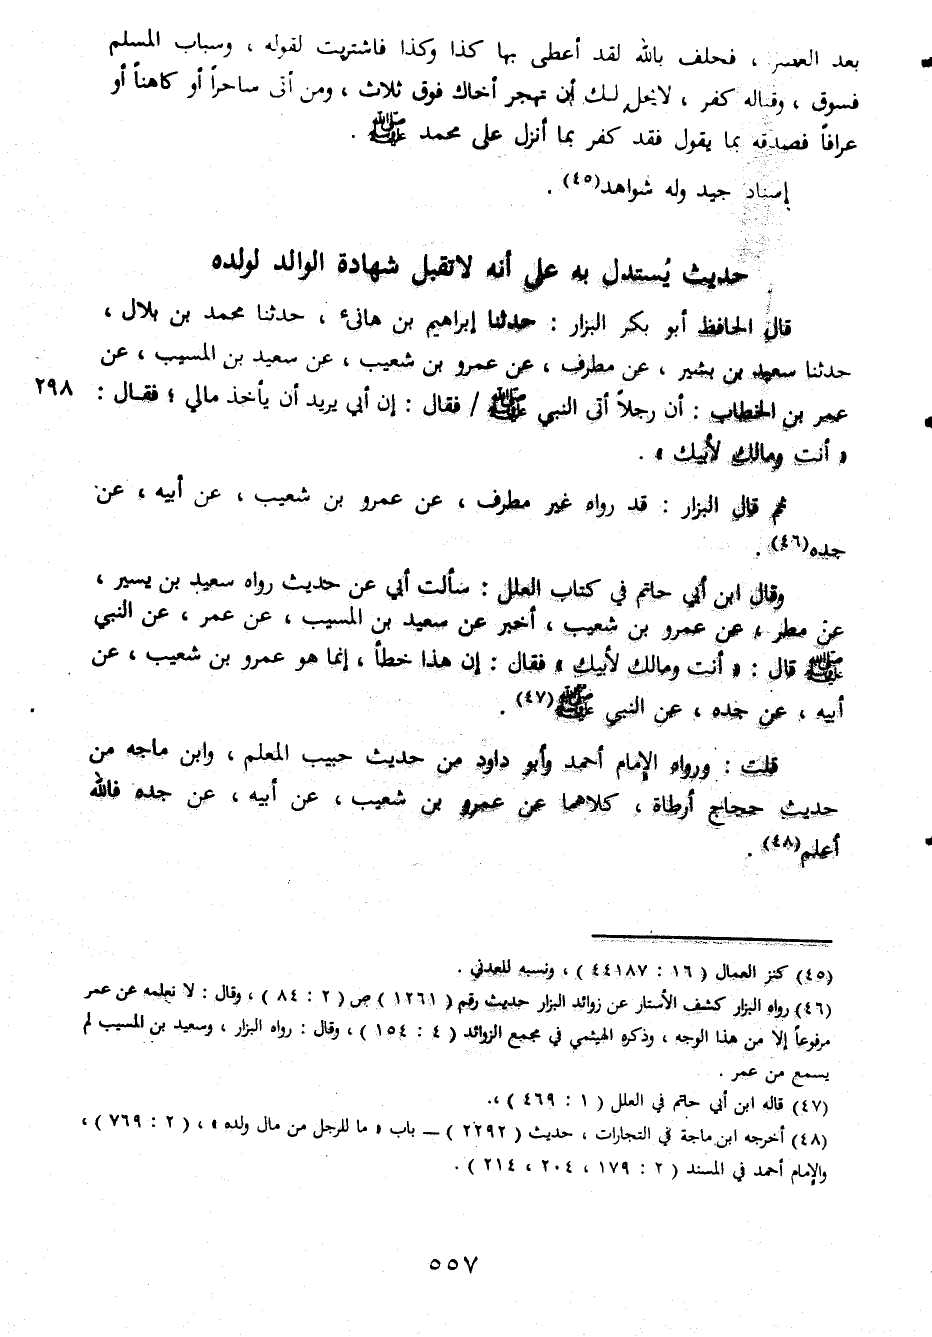 بعد العصر ، فحلف بالله لقد أعطى بها كذا وكذا فاشتريت لقوله ، وسباب المسلم
فسوق ، وقتاله كفر ، لا يحل لك أن تهجر أخاك فوق ثلاث ، ومن أتى ساحراً أو كاهناً أو
عرافاً فصدقه بما يقول فقد كفر بما أنزل على محمد ﷺ .
إسناد جيد وله شواهد(٤٥) .
حديث يُستدل به على أنه لا تقبل شهادة الوالد لولده
قال الحافظ أبو بكر البزار : حدثنا إبراهيم بن هانىء ، حدثنا محمد بن بلال ،
حدثنا سعيد بن بشير ، عن مطرف ، عن عمرو بن شعيب ، عن سعيد بن المسيب ، عن
عمر بن الخطاب : أن رجلاً أتى النبي ﷺ / فقال : إن أبي يريد أن يأخذ مالي ؛ فقال : ٢٩٨
« أنت ومالك لأبيك » .
ثم قال البزار : قد رواه غير مطرف ، عن عمرو بن شعيب ، عن أبيه ، عن
جده(٤٦) .
وقال ابن أبي حاتم في كتاب العلل : سألت أبي عن حديث رواه سعيد بن يسير ،
عن مطر ، عن عمرو بن شعيب ، أخبر عن سعيد بن المسيب ، عن عمر ، عن النبي
ﷺ قال : « أنت ومالك لأبيك » فقال : إن هذا خطأ ، إنما هو عمرو بن شعيب ، عن
أبيه ، عن جده ، عن النبي ﷺ(٤٧) .
قلت : ورواه الإمام أحمد وأبو داود من حديث حبيب المعلم ، وابن ماجه من
حديث حجاج أرطاة ، كلاهما عن عمرو بن شعيب ، عن أبيه ، عن جده فالله
أعلم(٤٨) .
(٤٥) كنز العمال ( ١٦ : ٤٤١٨٧ ) ، ونسبه للعدني .
(٤٦) رواه البزار كشف الأستار عن زوائد البزار حديث رقم ( ١٢٦١ ) ص ( ٢ : ٨٤ ) ، وقال : لا نعلمه عن عمر
مرفوعاً إلا من هذا الوجه ، وذكره الهيثمي في مجمع الزوائد ( ٤ : ١٥٤ ) ، وقال : رواه البزار ، وسعيد بن المسيب لم
يسمع من عمر .
(٤٧) قاله ابن أبي حاتم في العلل ( ١ : ٤٦٩ ) ،.
(٤٨) أخرجه ابن ماجة في التجارات ، حديث ( ٢٢٩٢ ) — باب « ما للرجل من مال ولده » ، ( ٢ : ٧٦٩ ) ،
والإمام أحمد في المسند ( ٢ : ١٧٩ ، ٢٠٤ ، ٢١٤ ) .
٥٥٧